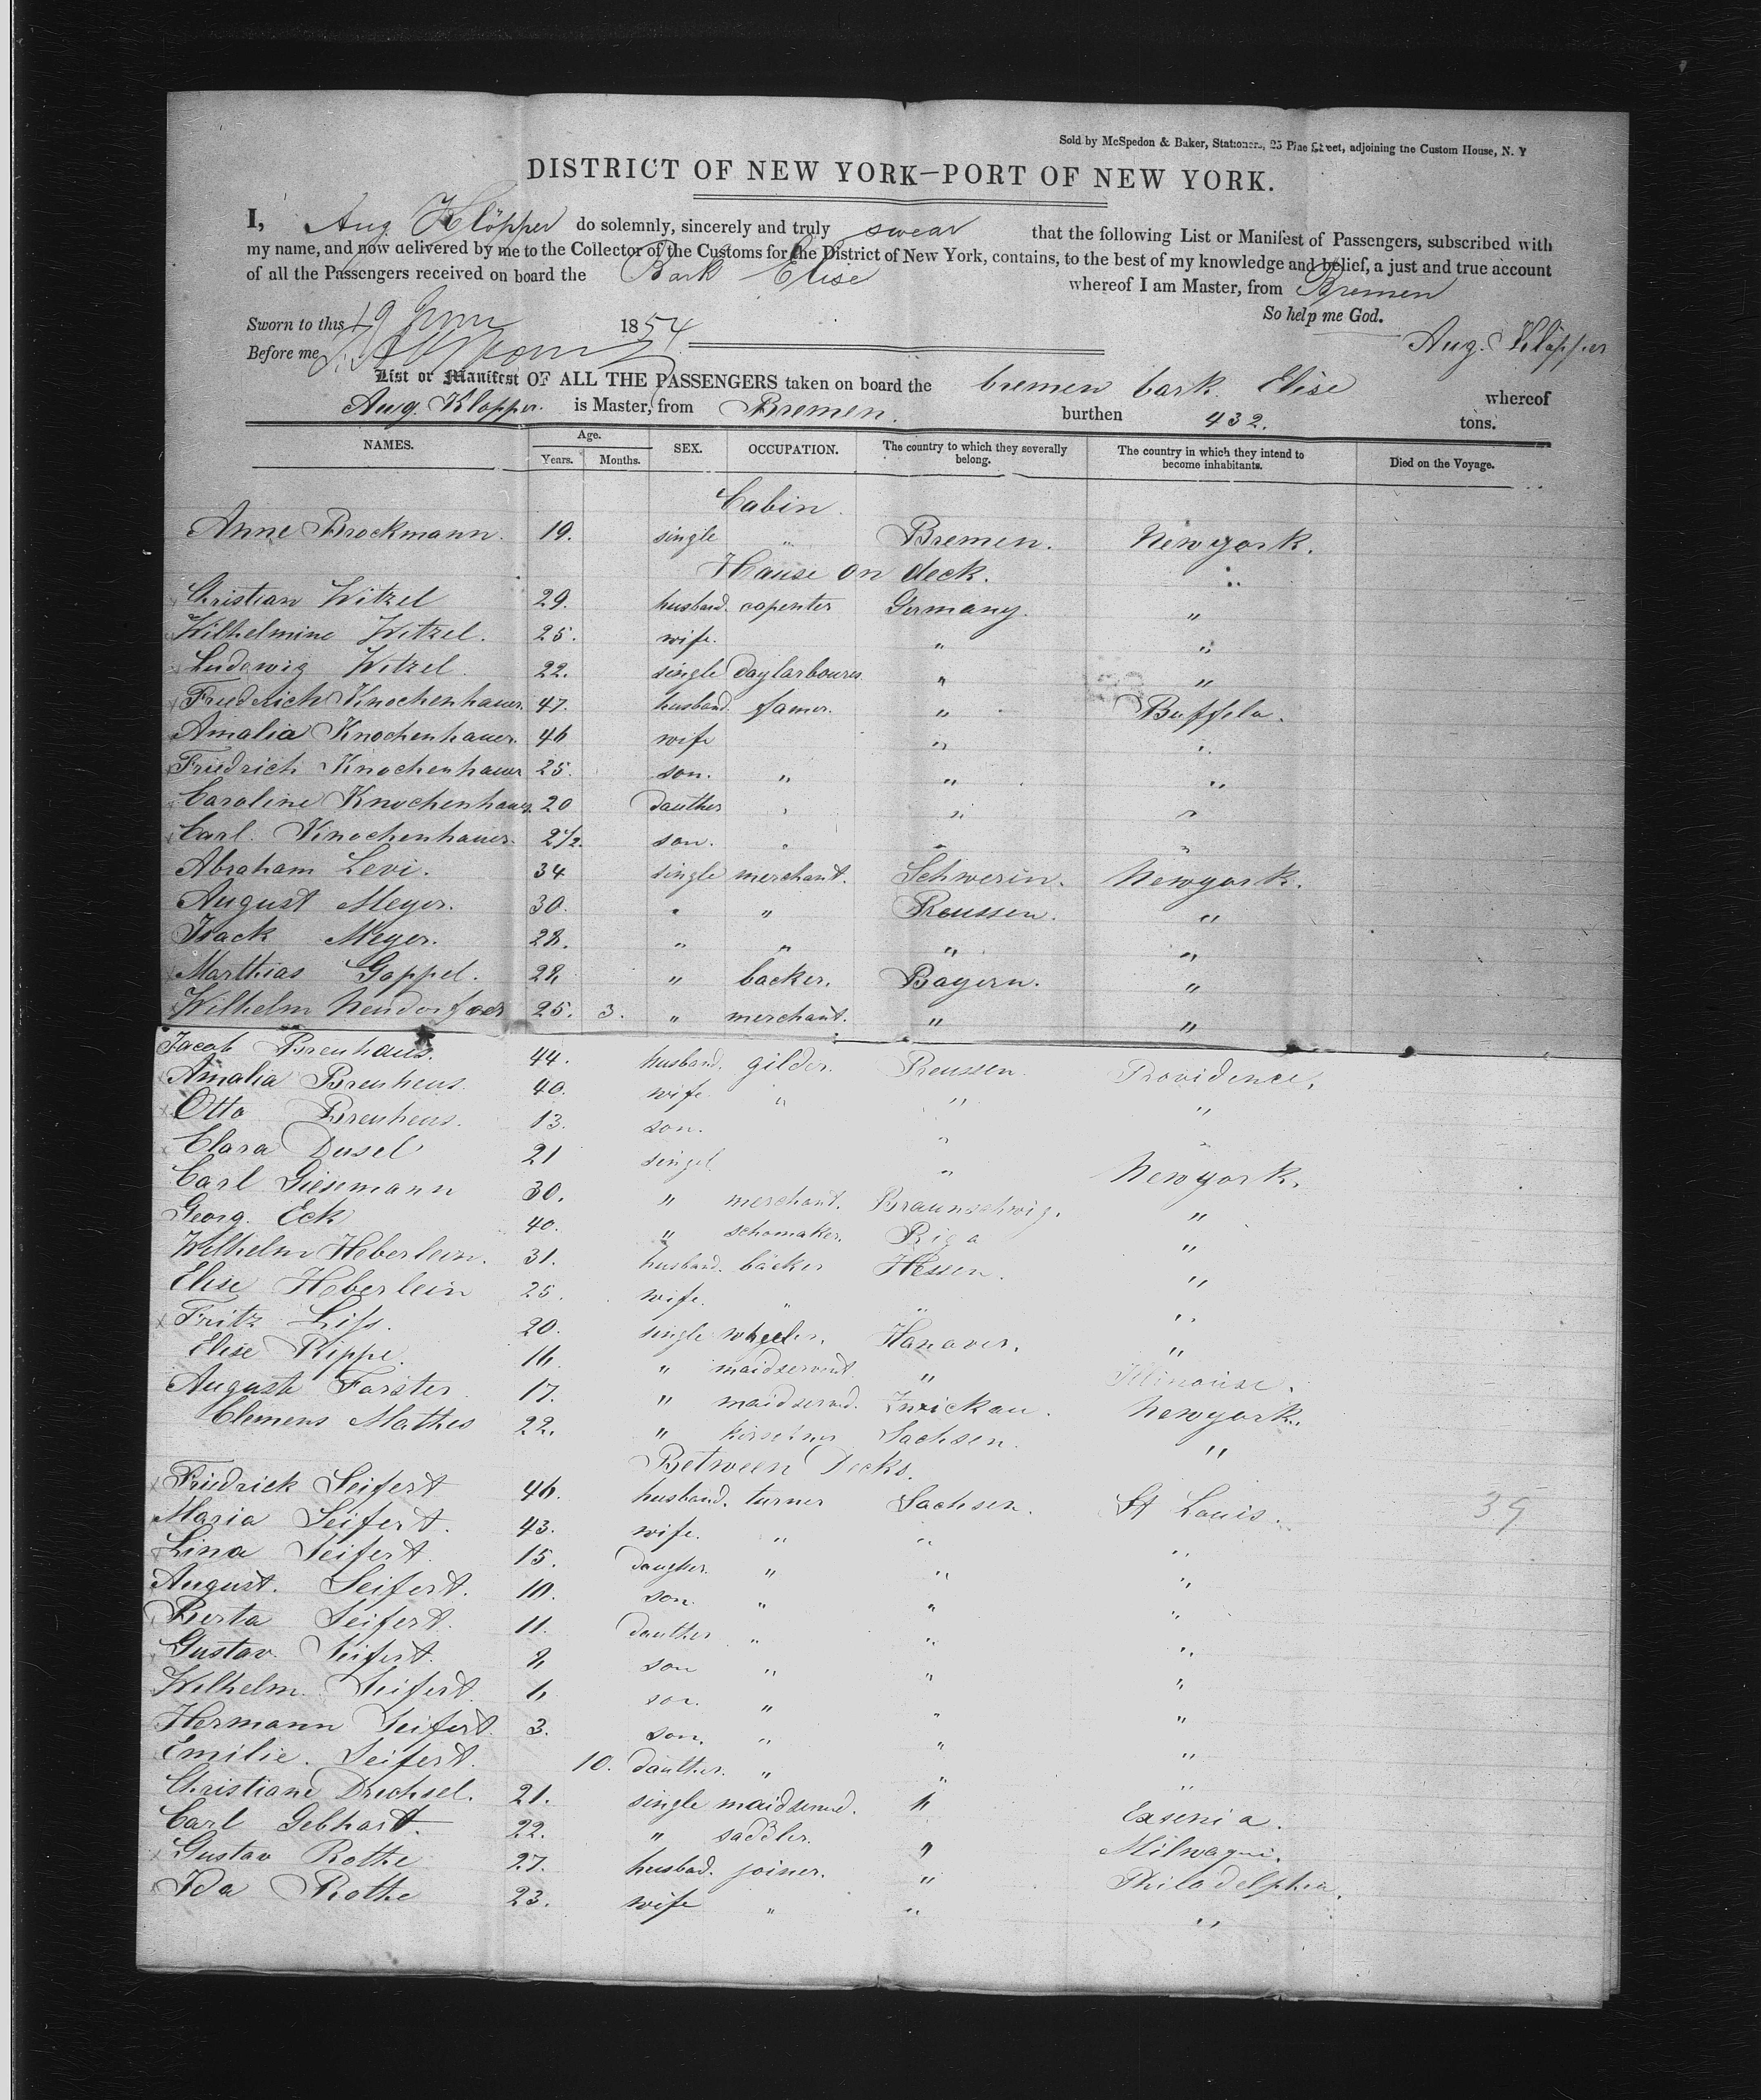 Sold by McSpedon & Baker, Stationers, 25 Pine Street, adjoining the Custom House, N. Y
DISTRICT OF NEW YORK—PORT OF NEW YORK.
I, Aug. Klöpper do solemnly, sincerely and truly swear that the following List or Manifest of Passengers, subscribed with
my name, and now delivered by me to the Collector of the Customs for the District of New York, contains, to the best of my knowledge and belief, a just and true account
of all the Passengers received on board the Bark Elise whereof I am Master, from Bremen
So help me God.
Sworn to this 19 1854.
Aug. Klöpper
Before me
List or Manifest OF ALL THE PASSENGERS taken on board the bremen bark Elise whereof
Aug. Klöpper. is Master, from Bremen. burthen 432. tons.
NAMES. Age. Years. Months. SEX. OCCUPATION. The country to which they severally belong. The country in which they intend to become inhabitants. Died on the Voyage.
Cabin.
Anne Brockmann. 19. single " Bremen. Newyork.
Hause on deck. "
Christian Witzel 29. husband. capenter Germany. "
Wilhelmine Witzel. 25. wife. " "
Ludewig Witzel. 22. single daylarboures " "
Friederich Knochenhauer. 47. husband. famer. " Buffelo.
Amalia Knochenhauer. 46 wife " "
Friedrich Knochenhauer 25. son. " " "
Caroline Knochenhauer 20 dauther " " "
Carl Knochenhauer. 2 1/2. son. " " "
Abraham Levi. 34 single merchant. Schwerin. Newyork.
August Meyer. 30. " " Preussen. "
Isack Meyer. 28. " " " "
Marthias Goppel. 28 " backer. Bayern. "
Wilhelm Neudorfoer 25. 3. " merchant. " "
Jacob Breuhaus. 44. husband. gilder. Preussen. Providence.
Amalia Breuheus. 40. wife " " "
Otto Breuheus. 13. son. " "
Clara Dusel 21 singel " Newyork.
Carl Giesemann 30. " merchant. Braunschwig. "
Georg. Eck 40. " schomaker. Riga "
Wilhelm Heberlein. 31. husband. bäcker Hessen. "
Elise Heberlein 25. wife. " " "
Fritz Liss. 20. single wheeler. Hanover. "
Elise Rippe. 16. " maidservent. " Illinoise.
Auguste Forster. 17. " maidserved. Zwickau. Newyork.
Clemens Mathes 22. " Sachsen. "
Between Decks.
Friedrick Seifert 46. husband. turner Sachsen. St Louis. 39
Maria Seifert. 43. wife. " " "
Lina Seifert. 15. daugher. " " "
August. Seifert. 10. son. " " "
Berta Seifert. 11. dauther " " "
Gustav. Seifert. 8 son " " "
Wilhelm. Seifert. 6 son. " " "
Hermann Seifert. 3. son. " " "
Emilie. Seifert. 10. dauther. " " "
Christiane Drechsel. 21. single maidserved. "
Carl Gebhart. 22. " saddler. " Milwaqui.
Gustav Rothe 27. husbad. joiner. " Philadelphia.
Ida Rothe 23. wife " " "